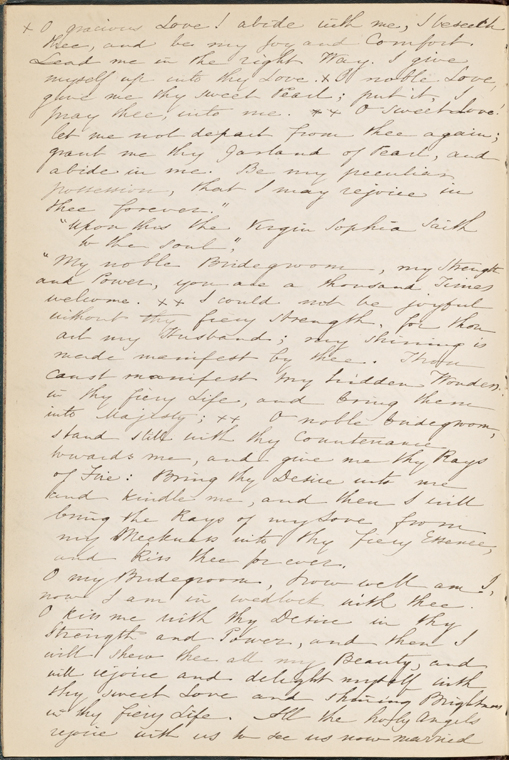 x O gracious Love! abide with me, I beseech
thee, and be my Joy and Comfort.
Lead me in the right Way. I give
myself up into thy Love. x O noble Love,
give me thy sweet Pearl; put it, I
pray thee, into me. xx O sweet Love!
let me not depart from thee again;
grant me thy Garland of Pearl, and
abide in me. Be my peculiar
possession, that I may rejoice in
thee forever."
"Upon this the Virgin Sophia saith
to the Soul,"
"My noble Bridegroom, my Strength
and Power, you are a thousand Times
welcome. xx I could not be joyful
without thy fiery strength, for thou
art my Husband; my shining is
made manifest by thee. Thou
canst manifest my hidden Wonders
in thy fiery Life, and bring them
into Majesty; xx O noble bridegroom,
stand still with thy Countenance
towards me, and give me thy Rays
of Fire: Bring thy Desire into me
and kindle me, and then I will
bring the Rays of my Love, from
my Meekness into thy fiery Essence,
and kiss thee for ever.
O my Bridegroom, how well am I,
now I am in wedlock with thee.
O kiss me with thy Desire in thy
Strength and Power, and then I
will shew thee all my Beauty, and
will rejoice and delight myself with
thy sweet Love and shining Brightness
in thy fiery Life. All the holy Angels
rejoice with us to see us now married